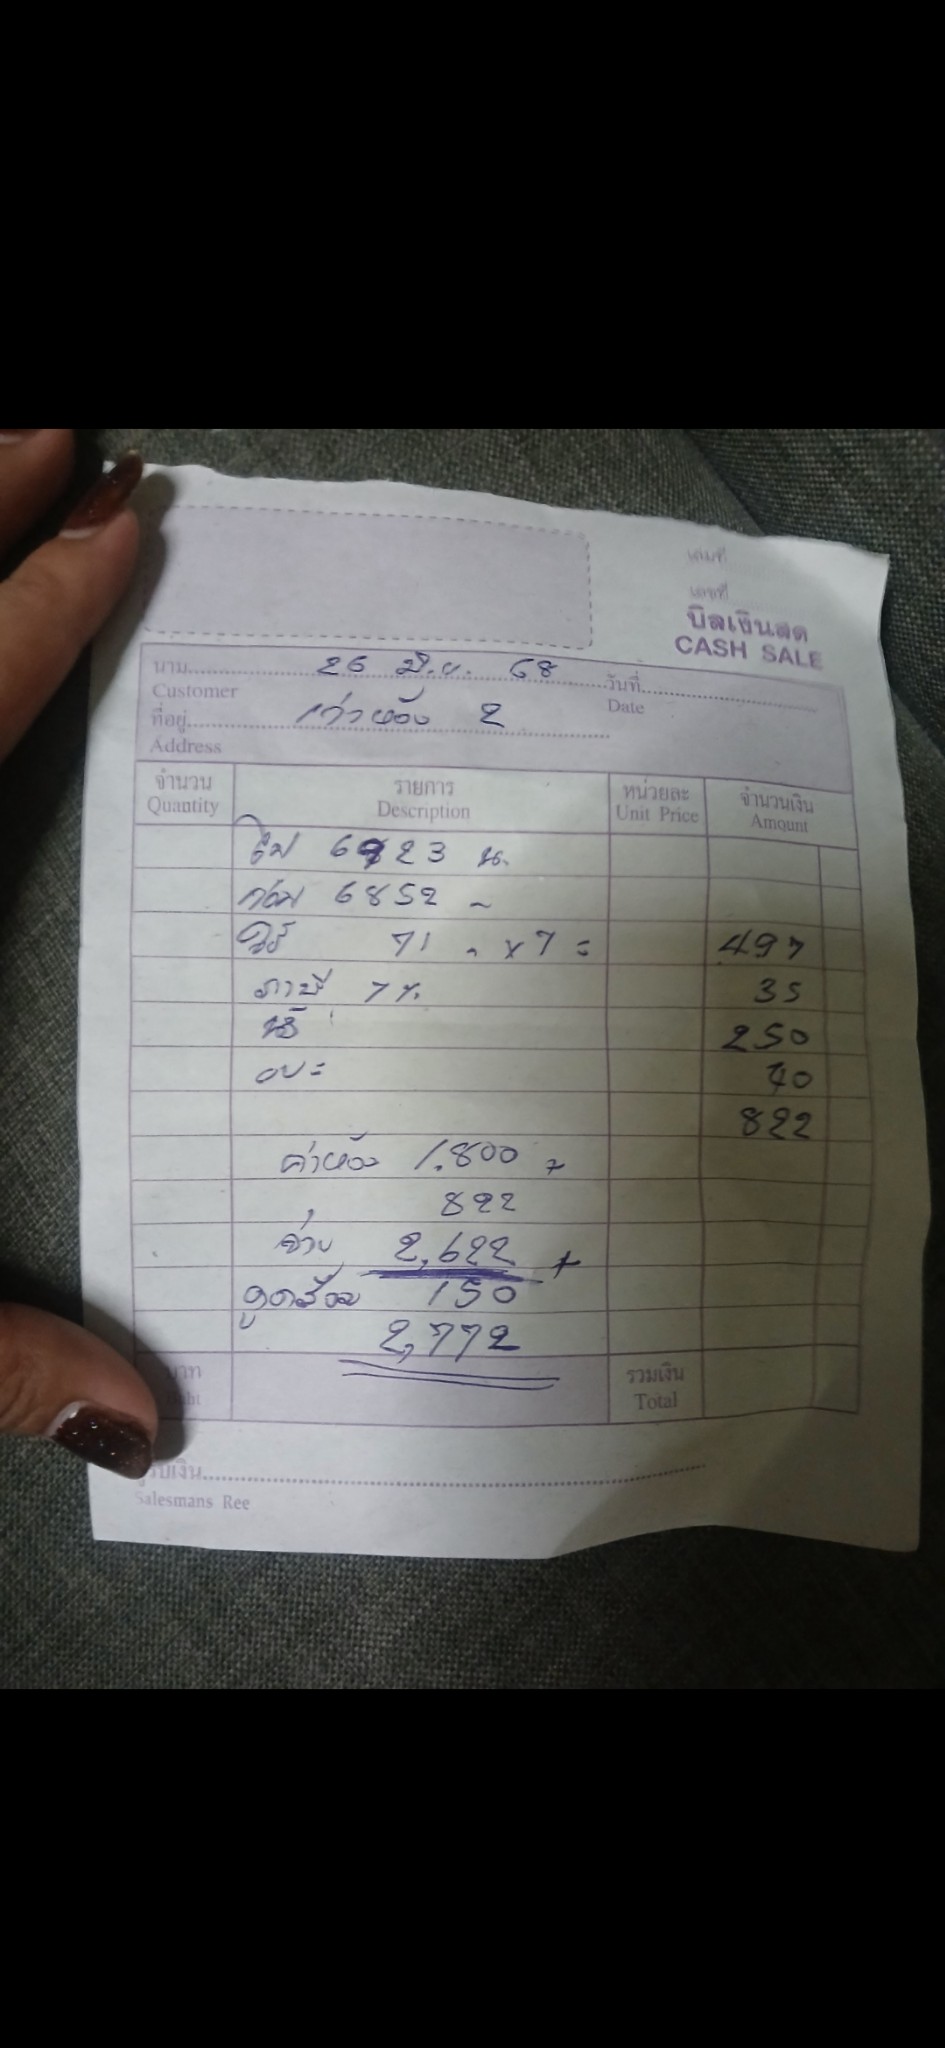 เล่มที่
เลขที่
บิลเงินสด
CASH SALE
นาม 26 มิ.ย. 68 วันที่
Customer Date
ที่อยู่ เก่าห้อง 2
Address
จำนวน รายการ หน่วยละ จำนวนเงิน
Quantity Description Unit Price Amount
ไฟ 6923 น.
ก่อน 6852 ~
ใช้ 71 ~ x 7 = 497
ภาษี 7% 35
น้ำ 250
ขยะ 40
822
ค่าห้อง 1.800 +
822
จ่าย 2,622 +
ดูดส้วม 150
2,772
บาท รวมเงิน
Baht Total
ผู้รับเงิน
Salesmans Ree